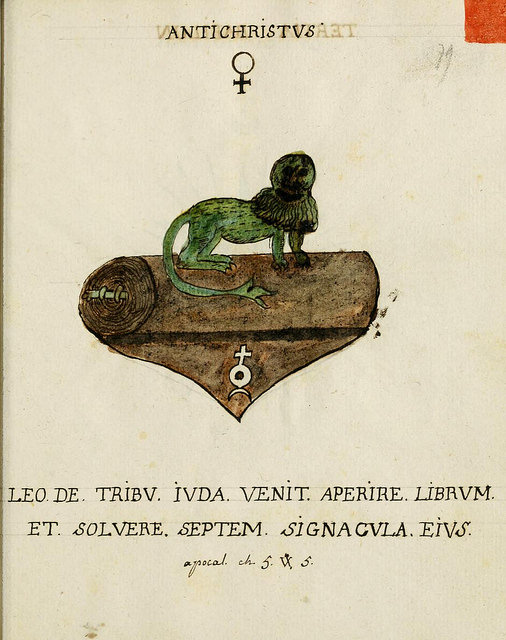 ANTICHRISTVS
79
LEO. DE. TRIBV. IVDA. VENIT. APERIRE. LIBRVM.
ET. SOLVERE. SEPTEM. SIGNACVLA. EIVS.
apocal. ch 5. V 5.